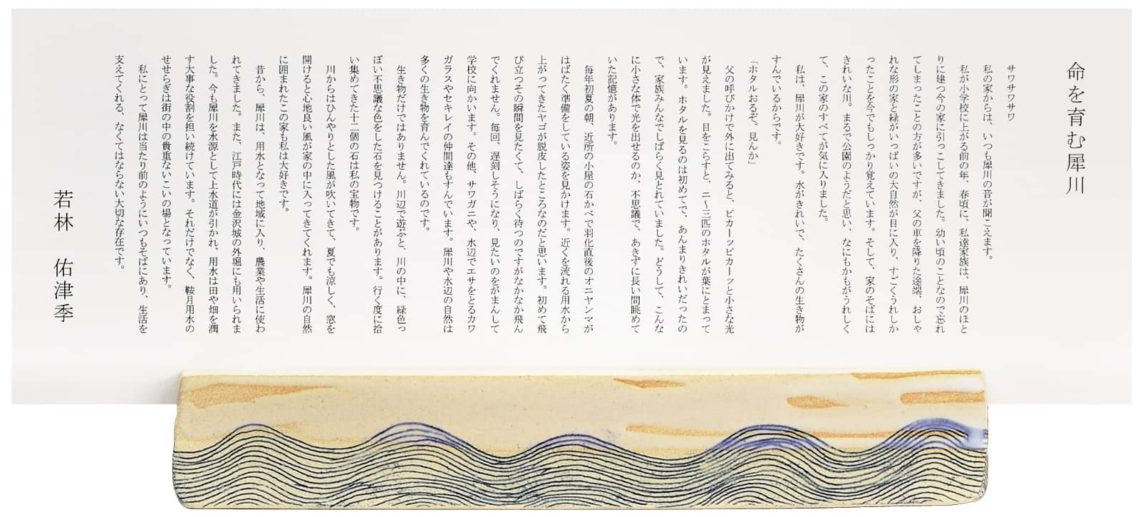 命を育む犀川
サワサワサワ
私の家からは、いつも犀川の音が聞こえます。
私が小学校に上がる前の年、春頃に、私達家族は、犀川のほと
りに建つ今の家に引っこしてきました。幼い頃のことなので忘れ
てしまったことの方が多いですが、父の車を降りた途端、おしゃ
れな形の家と緑がいっぱいの大自然が目に入り、すごくうれしか
ったことを今でもしっかり覚えています。そして、家のそばには
きれいな川。まるで公園のようだと思い、なにもかもがうれしく
て、この家のすべてが気に入りました。
私は、犀川が大好きです。水がきれいで、たくさんの生き物が
すんでいるからです。
「ホタルおるぞ。見んか」
父の呼びかけで外に出てみると、ピカーッピカーッと小さな光
が見えました。目をこらすと、二〜三匹のホタルが葉にとまって
います。ホタルを見るのは初めてで、あんまりきれいだったの
で、家族みんなでしばらく見とれていました。どうして、こんな
に小さな体で光を出せるのか、不思議で、あきずに長い間眺めて
いた記憶があります。
毎年初夏の朝、近所の小屋の石かべで羽化直後のオニヤンマが
はばたく準備をしている姿を見かけます。近くを流れる用水から
上がってきたヤゴが脱皮したところなのだと思います。初めて飛
び立つその瞬間を見たくて、しばらく待つのですがなかなか飛ん
でくれません。毎回、遅刻しそうになり、見たいのをがまんして
学校に向かいます。その他、サワガニや、水辺でエサをとるカワ
ガラスやセキレイの仲間達もすんでいます。犀川や水辺の自然は
多くの生き物を育んでくれているのです。
生き物だけではありません。川辺で遊ぶと、川の中に、緑色っ
ぽい不思議な色をした石を見つけることがあります。行く度に拾
い集めてきた十二個の石は私の宝物です。
川からはひんやりとした風が吹いてきて、夏でも涼しく、窓を
開けると心地良い風が家の中に入ってきてくれます。犀川の自然
に囲まれたこの家も私は大好きです。
昔から、犀川は、用水となって地域に入り、農業や生活に使わ
れてきました。また、江戸時代には金沢城の外堀にも用いられま
した。今も犀川を水源として上水道が引かれ、用水は田や畑を潤
す大事な役割を担い続けています。それだけでなく、鞍月用水の
せせらぎは街の中の貴重ないこいの場となっています。
私にとって犀川は当たり前のようにいつもそばにあり、生活を
支えてくれる、なくてはならない大切な存在です。
若林　佑津季